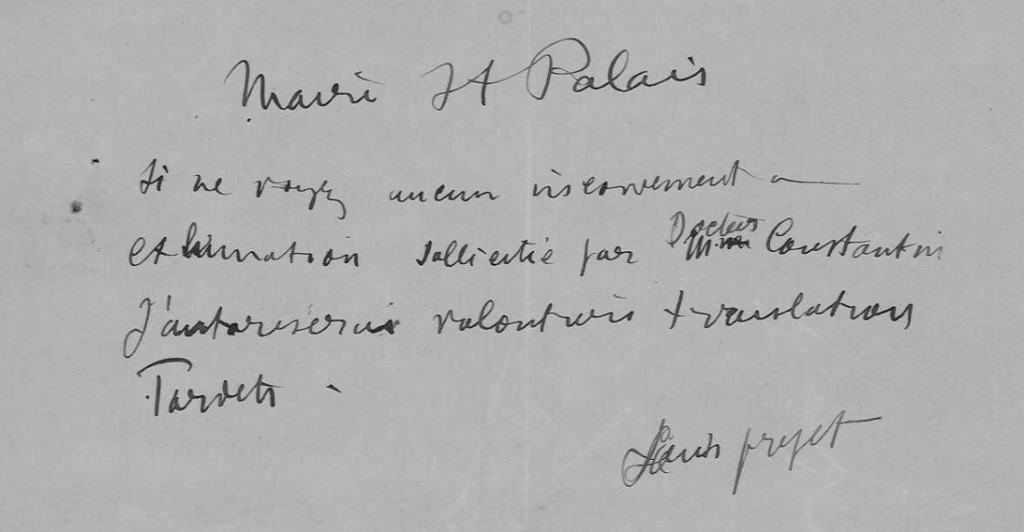 Maire St Palais
Si ne voyez aucun inconvenient a
exhumation sollicitée par Docteur Constantin
J'autoriserais volontiers translation
Tardets
Sous préfet